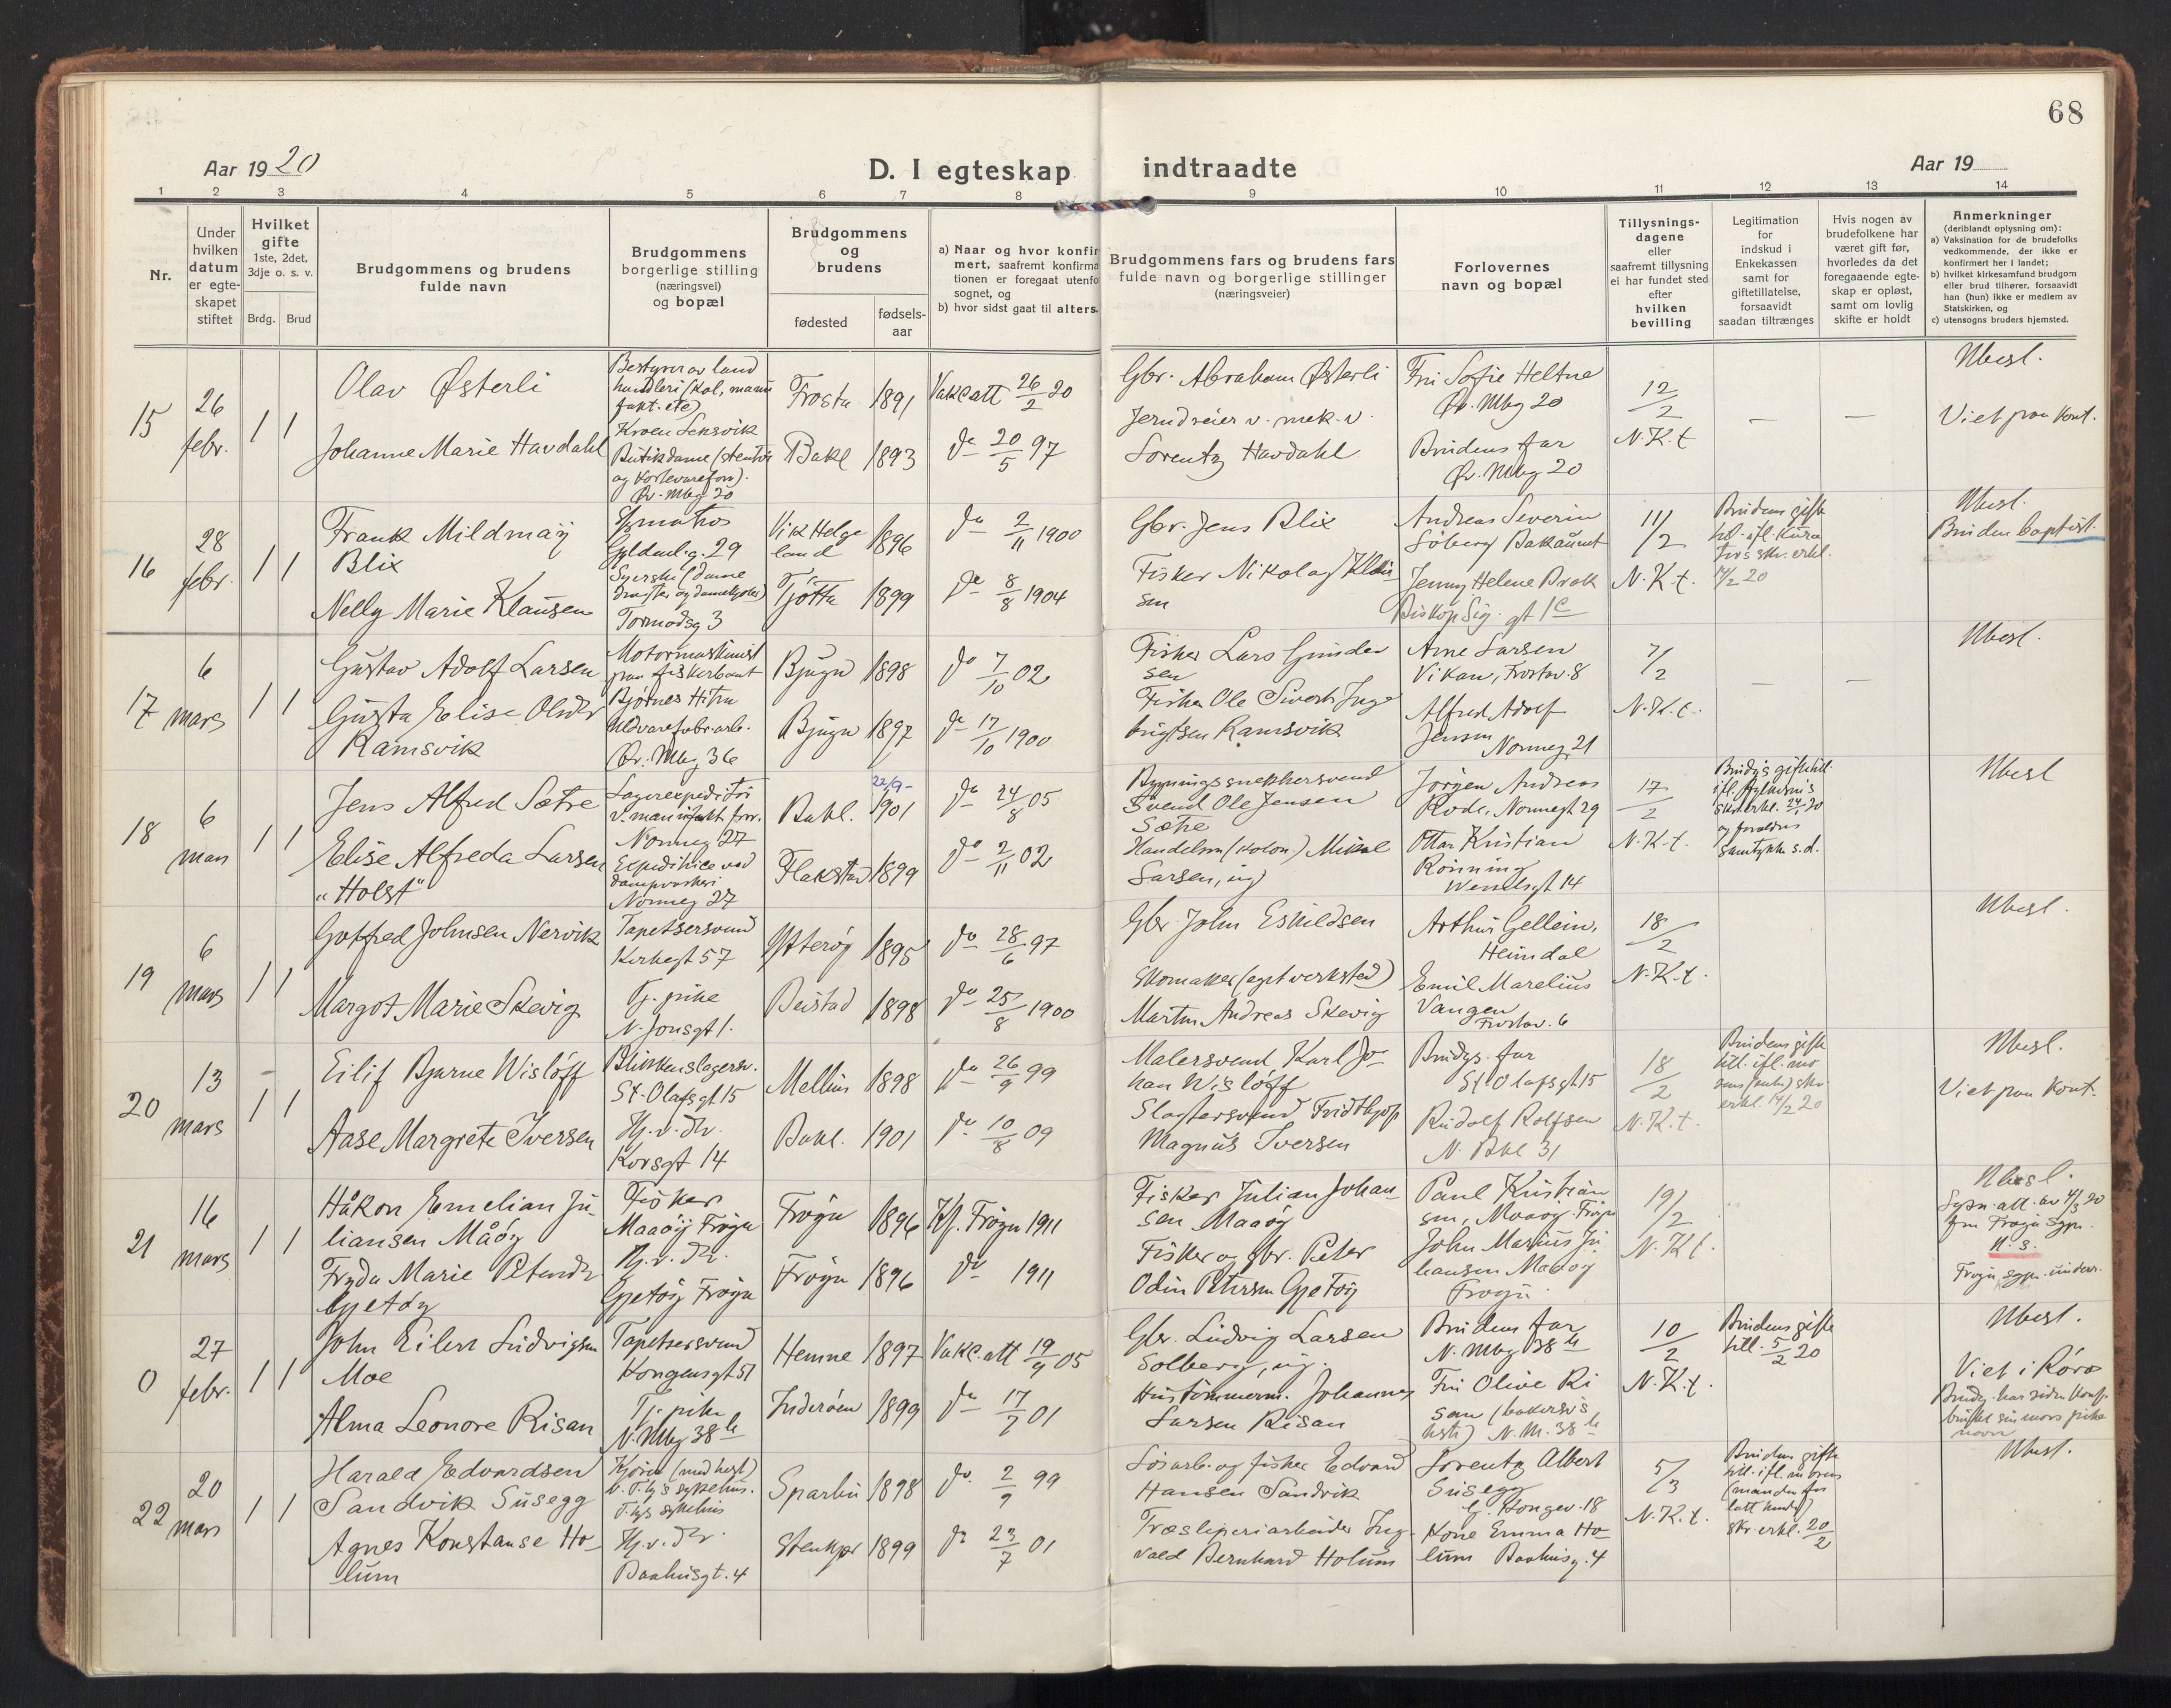 68
Aar 1920
D. I egteskap indtraadte
Aar 19
1 2 3 4 5 6 7 8 9 10 11 12 13 14
Nr.
Under
hvilken
datum
er egte-
skapet
stiftet
Hvilket
gifte
1ste, 2det,
3dje o. s. v.
Brdg. Brud
Brudgommens og brudens
fulde navn
Brudgommens
borgerlige stilling
(næringsvei)
og bopæl
Brudgommens
og
brudens
fødested
fødsels-
aar
a) Naar og hvor konfir
mert, saafremt konfirma
tionen er foregaat utenfo
sognet, og
b) hvor sidst gaat til alters.
Brudgommens fars og brudens fars
fulde navn og borgerlige stillinger
(næringsveier)
Forlovernes
navn og bopæl
Tillysnings-
dagene
eller
saafremt tillysning
ei har fundet sted
efter
hvilken
bevilling
Legitimation
for
indskud i
Enkekassen
samt for
giftetillatelse,
forsaavidt
saadan tiltrænges
Hvis nogen av
brudefolkene har
været gift før,
hvorledes da det
foregaaende egte-
skap er opløst,
samt om lovlig
skifte er holdt
Anmerkninger
(deriblandt oplysning om):
a) Vaksination for de brudefolks
vedkommende, der ikke er
konfirmert her i landet;
b) hvilket kirkesamfund brudgom
eller brud tilhører, forsaavidt
han (hun) ikke er medlem av
Statskirken, og
c) utensogns bruders hjemsted.
15
26
febr.
1 1
Olav Østerli
Johanne Marie Havdahl
Bestyrer av land
handleri (kol, manu
fakt. etc)
Leksvik
Butikdame
Øv. Mbg 20
Frosta 1891
Bakl 1893
Vakc att 26/2 20
do 20/5 97
Gbr. Abraham Østerli
Jerndreier v. mek. v.
Lorentz Havdahl
Fru Sofie Heltne
Øv. Mbg 20
Brudens far
Øv. Mbg 20
12/2
N. K. t
—
—
Ubesl.
Viet paa Kont.
16
28
febr.
1 1
Frank Mildmay
Blix
Nelly Marie Klausen
Gyldenl. g. 29
Syerske (dame
Tormodsg 3
Vik Helge
land 1896
Tjøtta 1899
do 2/11 1900
do 8/8 1904
Gbr. Jens Blix
Fisker Nikolay Klau
sen
Andreas Severin
Søberg Bakaunet
Jenny Helene Brok
Biskop Sig. gt 1c
11/2
N. K. t.
Brudens gifte
14/2 20
Ubesl.
Bruden baptist.
17
6
mars
1 1
Gustav Adolf Larsen
Gusta Elise Olsdr
Ramsvik
Motormaskinist
paa fiskerbaat
Bjørnes Hitra
Øv. Mbg 36
Bjugn 1898
Bjugn 1897
do 7/10 02
do 17/10 1900
Fisker Lars Gunder
sen
Fisker Ole Sivert Inge
brigtsen Ramsvik
Arne Larsen
Vikan, Frostav. 8
Alfred Adolf
Jensen
Norneg 21
7/2
N. K. t.
—
—
Ubesl.
18
6
mars
1 1
Jens Alfred Sætre
Elise Alfreda Larsen
"Holst"
Lagerexpeditør
v. manufakt. forr.
Norneg 27
Expeditrice ved
dampvaskeri
Norneg 27
Bakl. 22/9 1901
Flakstad 1899
do 24/8 05
do 2/11 02
Bygningssnekkersvend
Svend Ole Jensen
Sætre
Handelsm (kolon.) Mikal
Larsen, ug
Jørgen Andreas
Rode, Nornegt 29
Ottar Kristian
Rønning
17/2
N. K. t.
og foreldres
samtykke s. d.
Ubesl
19
6
mars
1 1
Gotfred Johnsen Nervik
Margot Marie Skevig
Tapetsersvend
Kirkegt 57
Tj. pike
N. Jonsgt 1.
Ytterøy 1895
Beistad 1898
do 28/6 97
do 25/8 1900
Gbr John Eskildsen
Skomaker (eget verksted)
Martin Andreas Skevig
Arthur Gellein,
Heimdal
Emil Marelius
Vangen
Frostav. 6
18/2
N. K. t.
Ubesl.
20
13
mars
1 1
Eilif Bjarne Wisløff
Aase Margrete Iversen
Blikkenslagersv.
St. Olafsgt 15
Hj. v. Fr.
Korsgt 14
Melhus 1898
Bakl. 1901
do 26/9 99
do 10/8 09
Malersvend Karl Jo-
han Wisløff
Slagtersvend Fridthjof
Magnus Iversen
Brudgs. far
St. Olafsgt 15
Rudolf Rolfsen
N. Bkl 31
18/2
N. K. t.
Brudens gifte
erkl. 14/2 20
Ubesl.
Viet paa Kont.
21
16
mars
1 1
Håkon Emelian Ju-
liansen Måøy
Fryda Marie Petersdr
Gjetøy
Fisker
Maaøy Frøya
Hj. v. Fr.
Gjetøy Frøya
Frøya 1896
Frøya 1896
Kf. Frøya 1911
do 1911
Fisker Julian Johan-
sen Maaøy
Fisker og gbr. Peter
Odin Petersen Gjetøy
Paul Kristian
sen, Maaøy Frøya
John Marius Ju
liansen Maaøy
Frøya
19/2
N. K. t.
Ubesl.
Sypr. att. av 4/3 20
fra Frøya sypr.
N. 3.
Frøya sypr. underr.
0
27
febr.
1 1
John Eilert Ludvigsen
Moe
Alma Leonore Risan
Tapetsersvend
Kongensgt 51
Tj. pike
N. Mbg 38 b
Hemne 1897
Inderøen 1899
Vakc. att 19/9 05
do 17/7 01
Gbr. Ludvig Larsen
Solberg, ug.
Hustømmerm. Johannes
Larsen Risan
Brudens far
N. Mbg 38 b
Fru Olive Ri
san (bakersv's
N. M. 38 b
10/2
N. K. t.
Brudens gifte
till. 5/2 20
Ubesl.
Viet i Røros
Brudg. har siden konf.
brukt sin mors pike
navn
22
20
mars
1 1
Harald Edvardsen
Sandvik Susegg
Agnes Konstanse Ho-
lum
Kjører (med hest)
Hj. v. Fr.
Baahusgt. 4
Sparbu 1898
Stenkjær 1899
do 2/9 99
do 23/7 01
Løsarb. og fisker Edvard
Hansen Sandvik
Træsliperiarbeider Ing-
vald Bernhard Holum
Lorentz Albert
Susegg
Kone Emma Ho-
lum Baahusg. 4
5/3
N. K. t.
Brudens gifte
till. ifl. morens
(manden for
latt hende)
skr. erkl. 20/2
Ubesl.